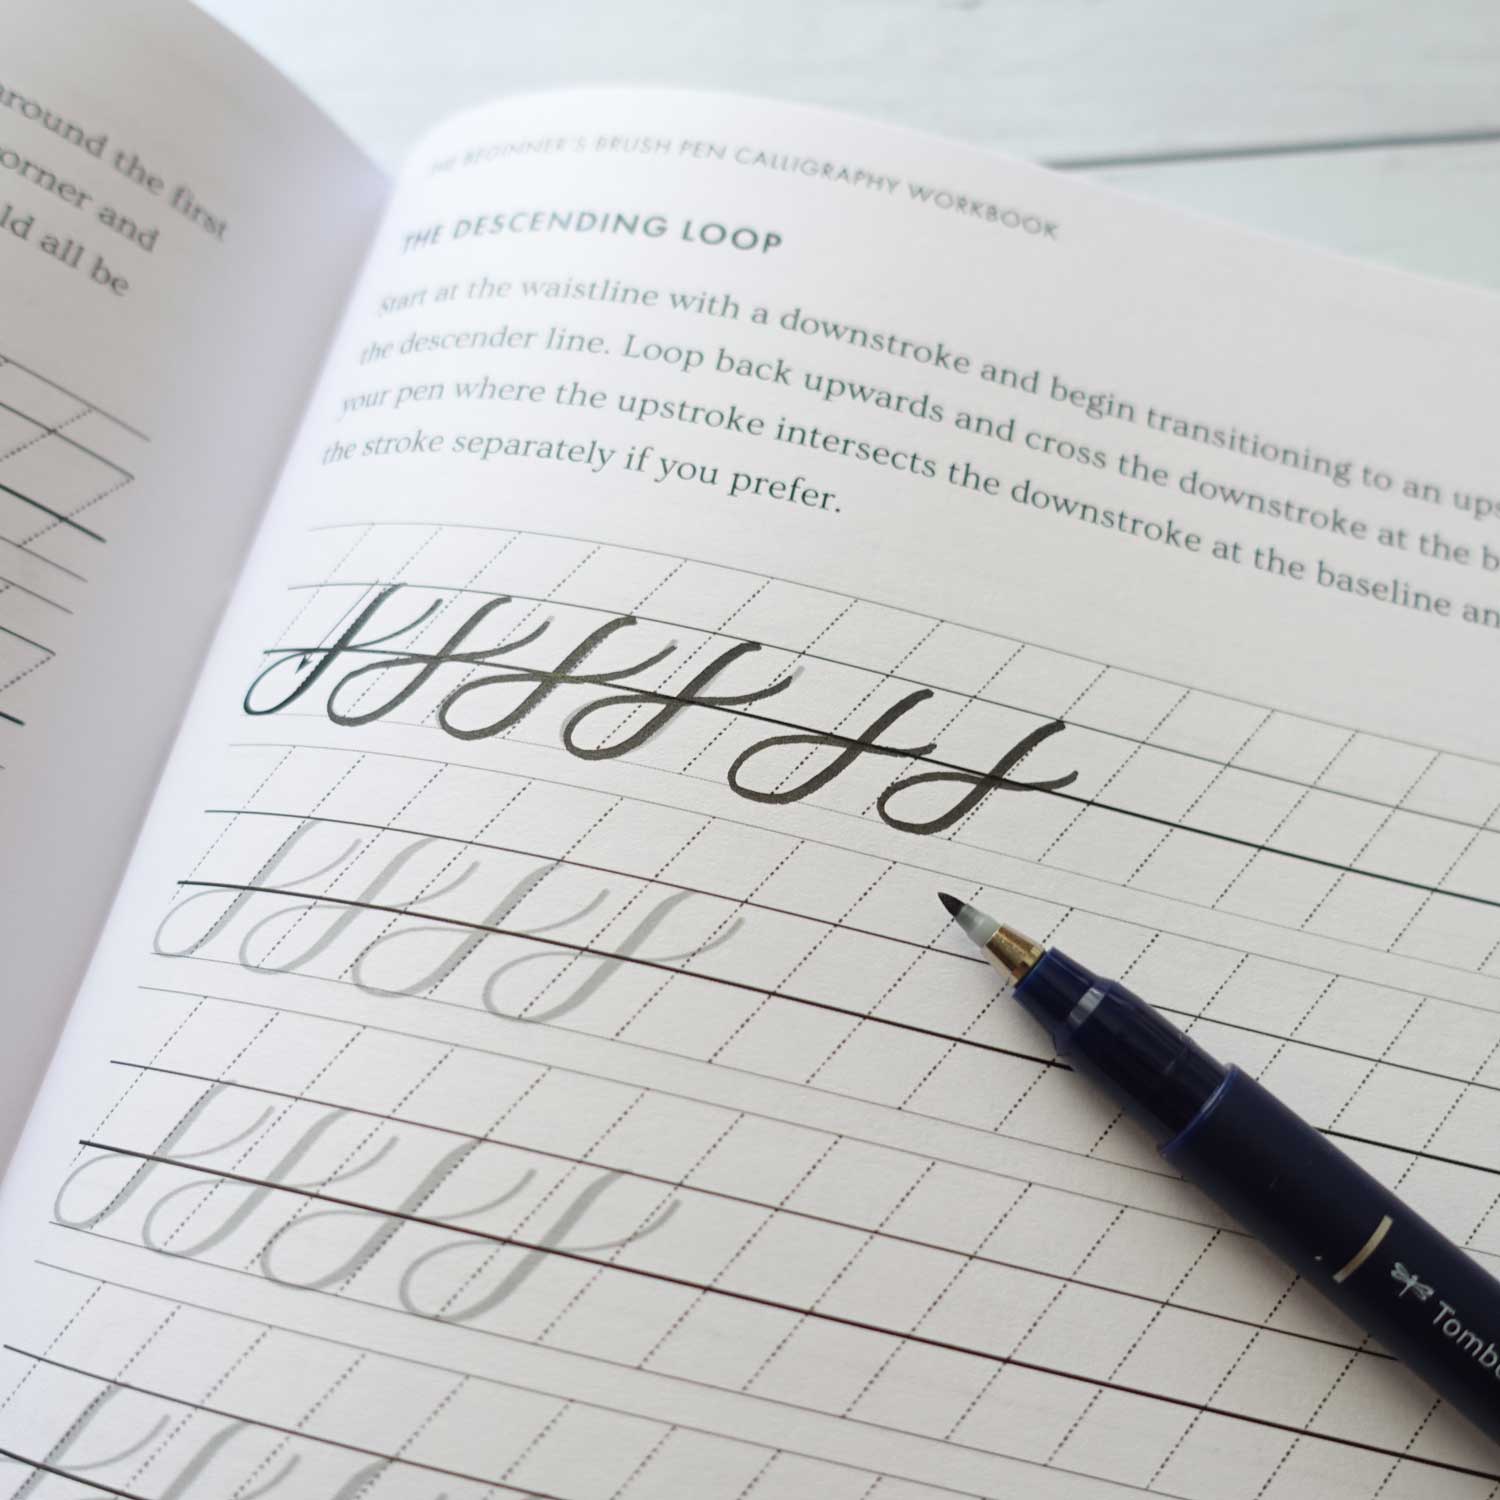 around the first
corner and
all be
THE BEGINNER'S BRUSH PEN CALLIGRAPHY WORKBOOK
THE DESCENDING LOOP
Start at the waistline with a downstroke and begin transitioning to an
the descender line. Loop back upwards and cross the downstroke at the
your pen where the upstroke intersects the downstroke at the baseline
the stroke separately if you prefer.